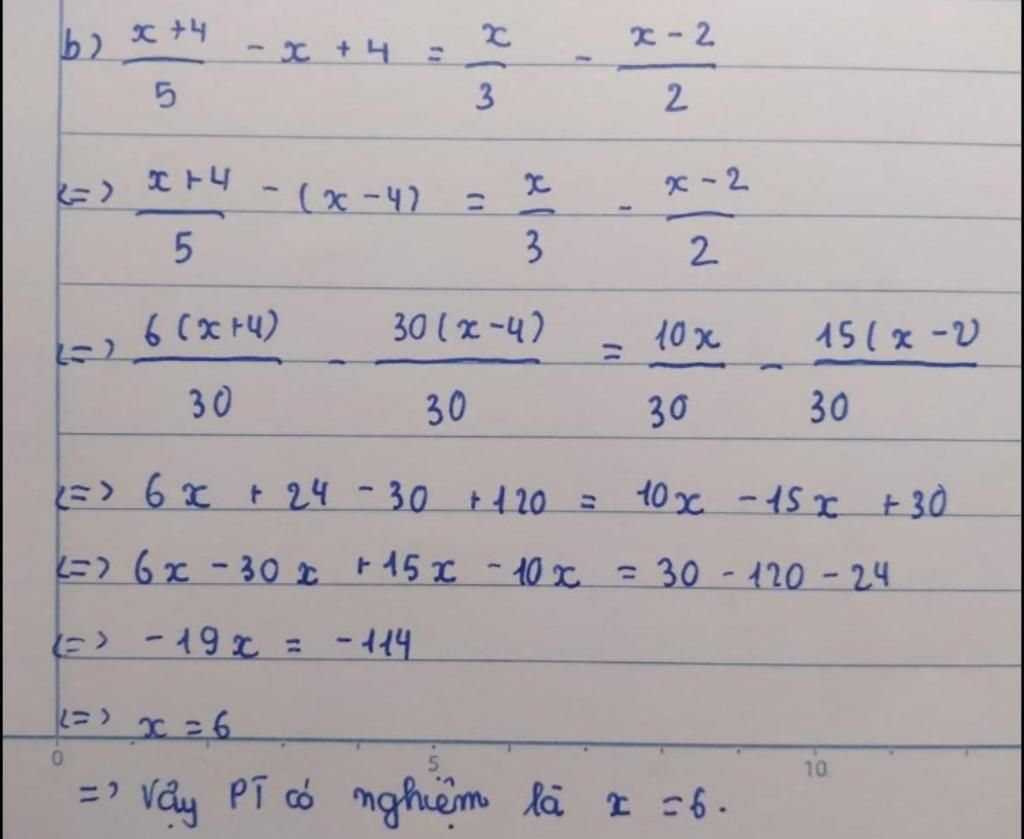 b) (x+4)/5 - x + 4 = x/3 - (x-2)/2
<=> (x+4)/5 - (x-4) = x/3 - (x-2)/2
<=> 6(x+4)/30 - 30(x-4)/30 = 10x/30 - 15(x-2)/30
<=> 6x + 24 - 30 + 120 = 10x - 15x + 30
<=> 6x - 30x + 15x - 10x = 30 - 120 - 24
<=> -19x = -114
<=> x = 6
0 5 10
=> Vậy PT có nghiệm là x = 6.